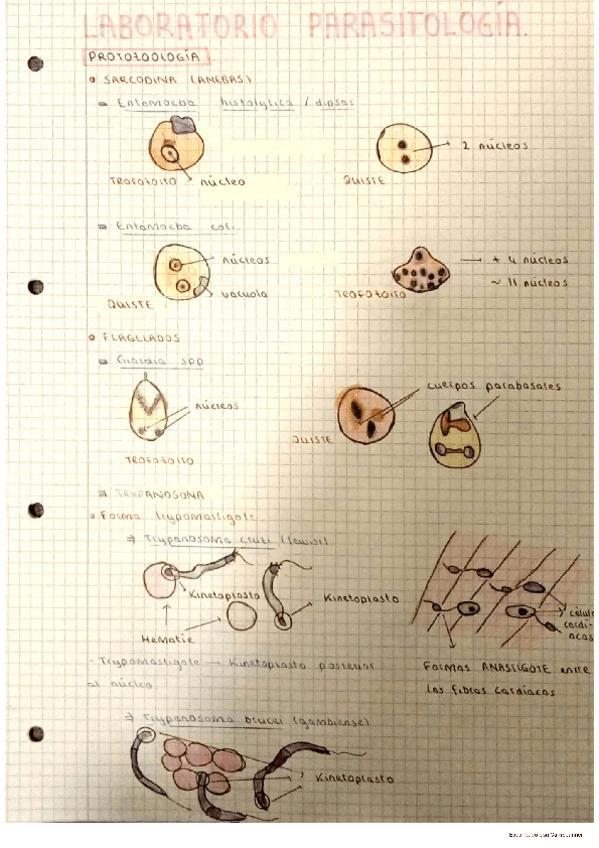 LABORATORIO PARASITOLOGÍA.
PROTOZOOLOGÍA
SARCODINA (AMEBAS)
Entamoeba histolytica / dispar
2 núcleos
TROFOZOITO núcleo QUISTE
Entamoeba coli.
núcleos
vacuola
QUISTE
+ 4 núcleos
~ 11 núcleos
TROFOZOITO
FLAGELADOS
Giardia spp
núcleos
TROFOZOITO
cuerpos parabasales
QUISTE
TRYPANOSOMA
Forma trypomastigote
⇒ Trypanosoma cruzi (lewisi)
Kinetoplasto
Kinetoplasto
Hematíe
célula
cardí-
acas
- Trypomastigote → Kinetoplasto posterior
al núcleo.
FORMAS AMASTIGOTE entre
las fibras cardíacas
⇒ Trypanosoma brucei (gambiense)
Kinetoplasto